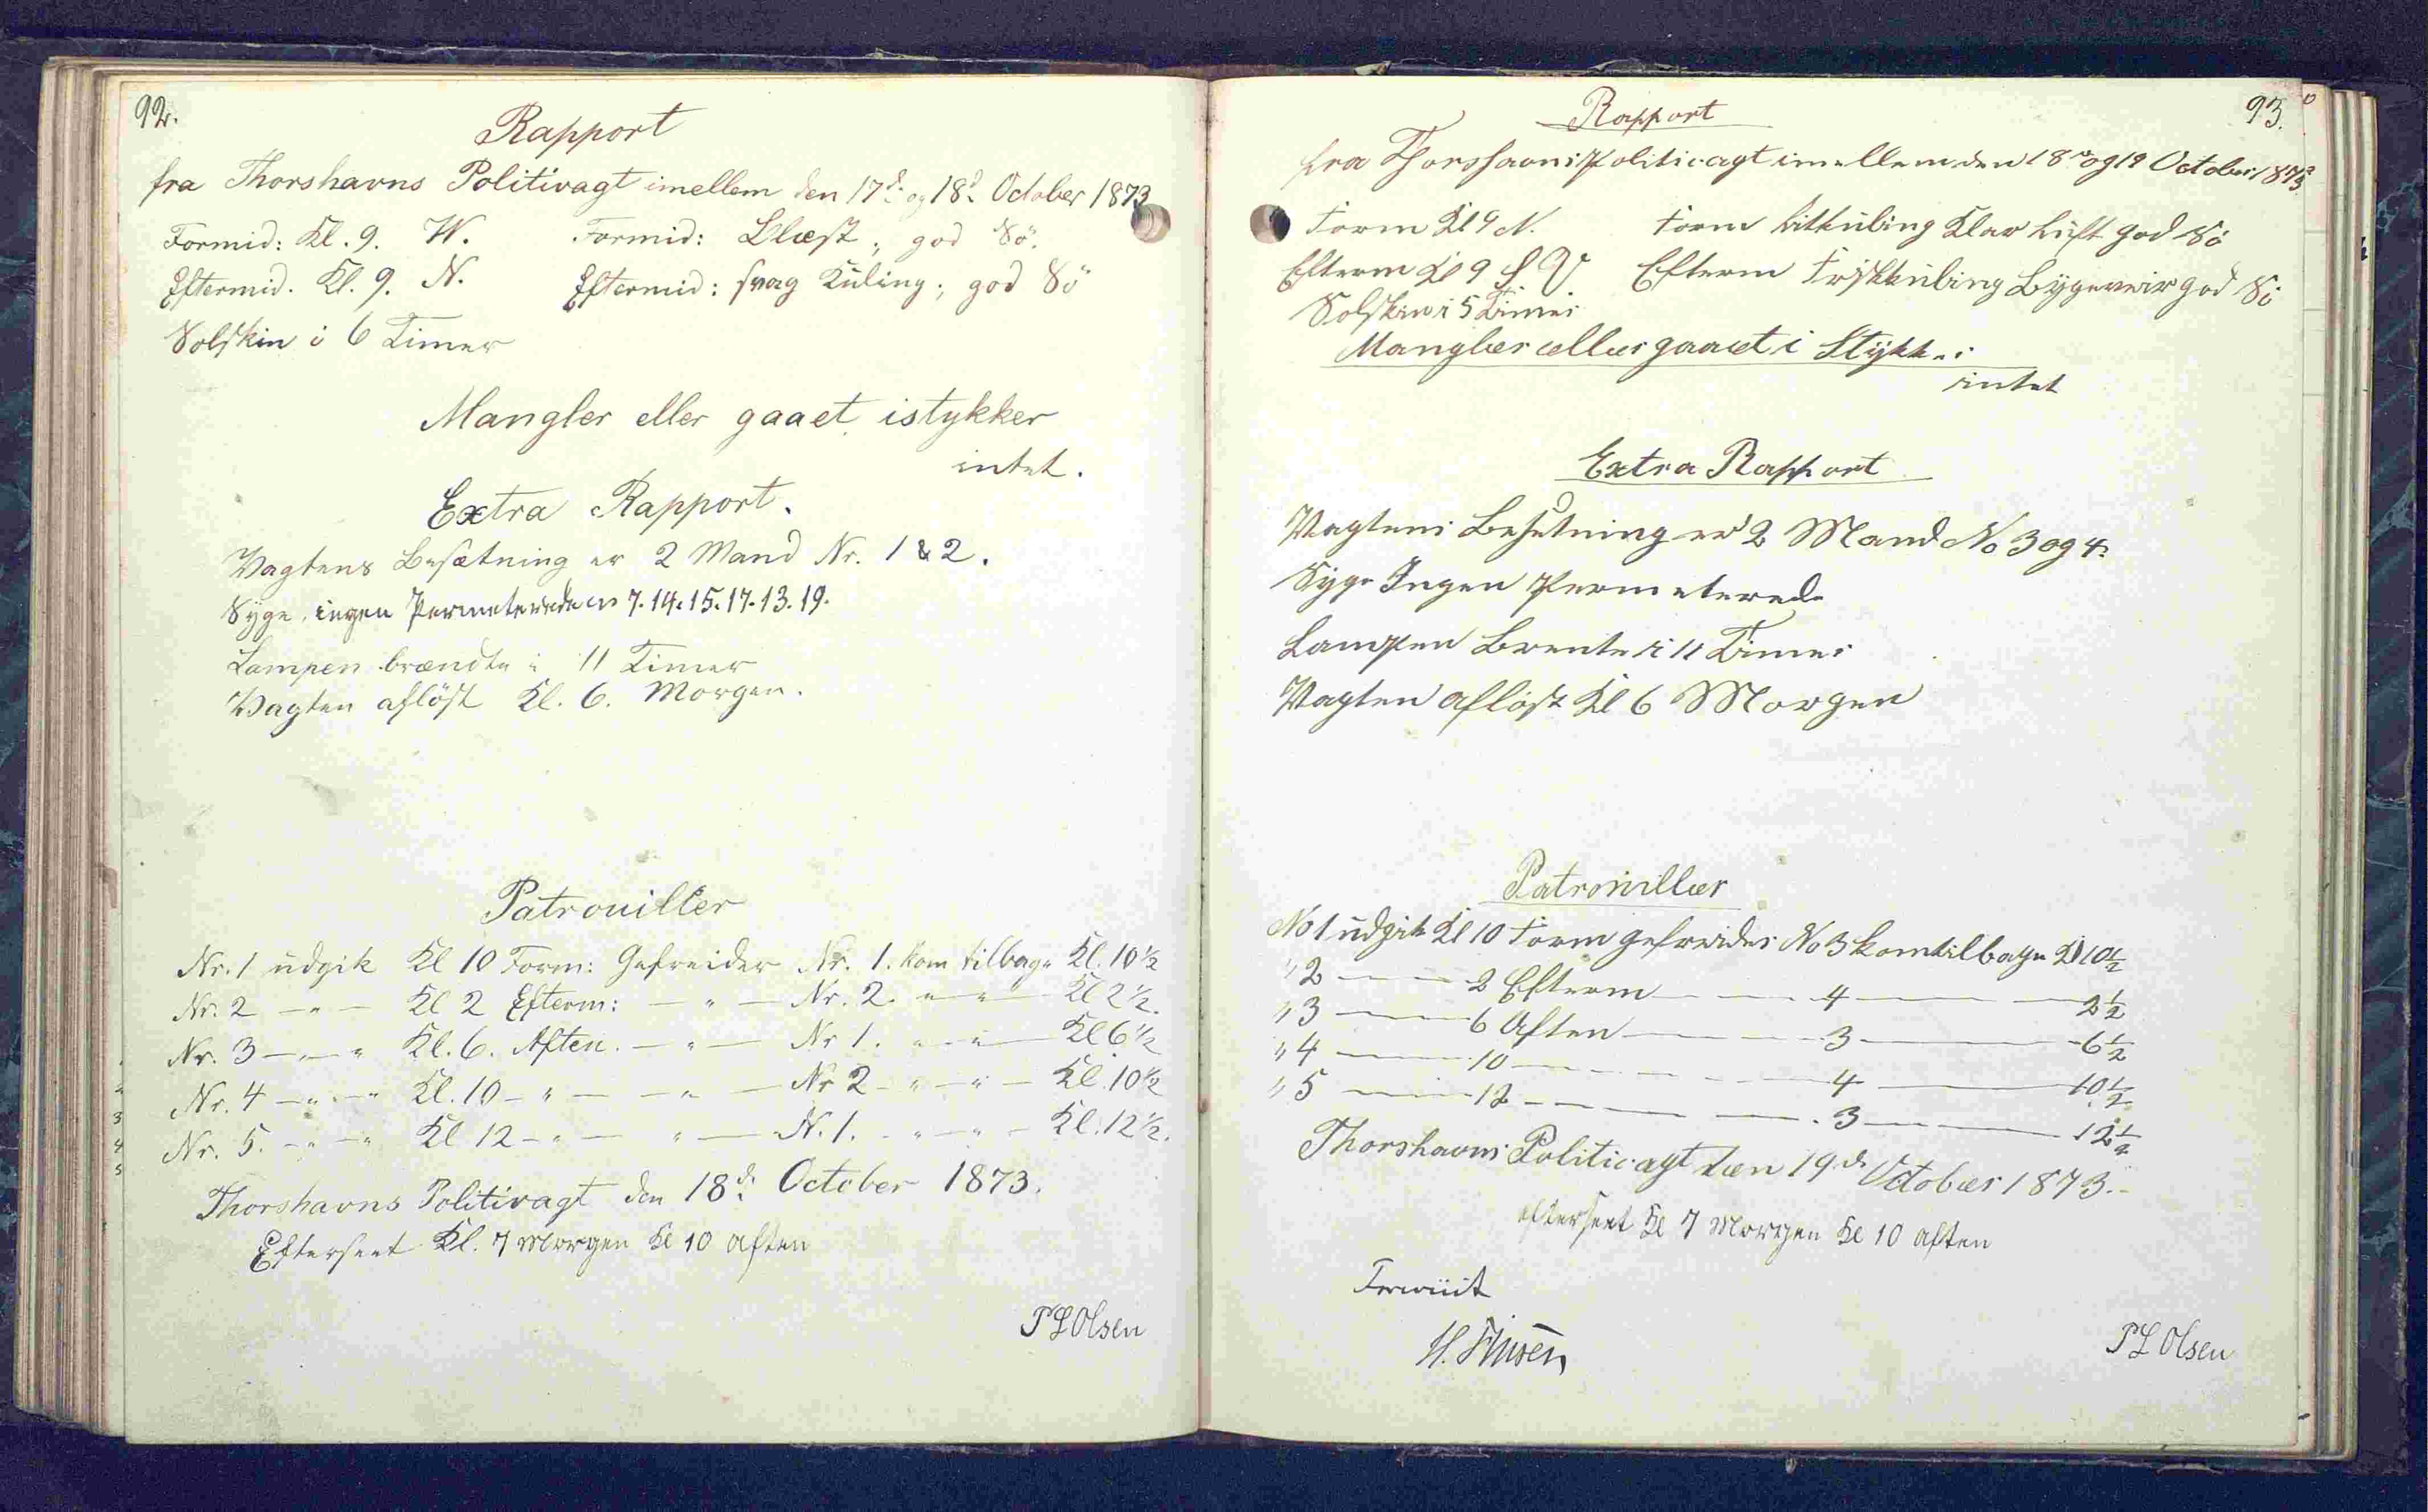 92.
Rapport
fra Thorshavns Politivagt imellem den 17d: og 18d: October 1873
Formid: Kl. 9. W. Formid: Blæst; god Sö.
Eftermid. Kl. 9. N. Eftermid: svag Kuling; god Sö
Solskin i 6 Timer
Mangler eller gaaet istykker
intet.
Extra Rapport.
Vagtens Besætning er 2 Mand Nr. 1 & 2.
Syge, ingen Permeterede 7. 14. 15. 17. 13. 19.
Lampen brændte i 11 Timer
Vagten aflöst Kl. 6. Morgen.
Patrouiller
Nr. 1 udgik Kl 10 Form: Gefreider Nr. 1. kom tilbage Kl. 10 ½
Nr. 2 — " — Kl 2 Efterm: — " — Nr. 2. " — " — Kl 2 ½.
Nr. 3 — " — " Kl. 6. Aften. — " — Nr 1. " — " — Kl 6 ½
Nr. 4 — " — " Kl. 10 — " — — " — Nr 2 — " — " — Kl. 10 ½
Nr. 5. — " — " Kl 12 — " — " — N. 1. — " — " — Kl. 12 ½.
Thorshavns Politivagt den 18d: October 1873.
Efterseet Kl. 7 Morgen Kl 10 aften
P L Olsen
93.
Rapport
fra Thorshavns Politivagt imellem den 18 og 19 October 1873
Form Kl 9 N. Form Kuling Klar Luft god Sö
Efterm Kl 9 S V Efterm Friskkuling Bygeveir god Sö
Solskin i 5 Timer
Mangler eller gaaet i Stykker
intet
Extra Rapport
Vagtens Besetning er 2 Mand No 3 og 4.
Syge Ingen Permeterede
Lampen Brente i 11 Timer
Vagten aflöst Kl 6 Morgen
Patrouiller
No 1 udgik Kl 10 Form gefreider No 3 kom tilbage Kl 10 ½
" 2 — — — 2 Efterm — — 4 — — 2 ½
" 3 — — — 6 Aften — — 3 — — 6 ½
" 4 — — — 10 — — — 4 — — 10 ½
" 5 — — — 12 — — — 3 — — 12 ½
Thorshavns Politivagt den 19.d October 1873.
efterseet Kl 7 Morgen Kl 10 aften
P L Olsen